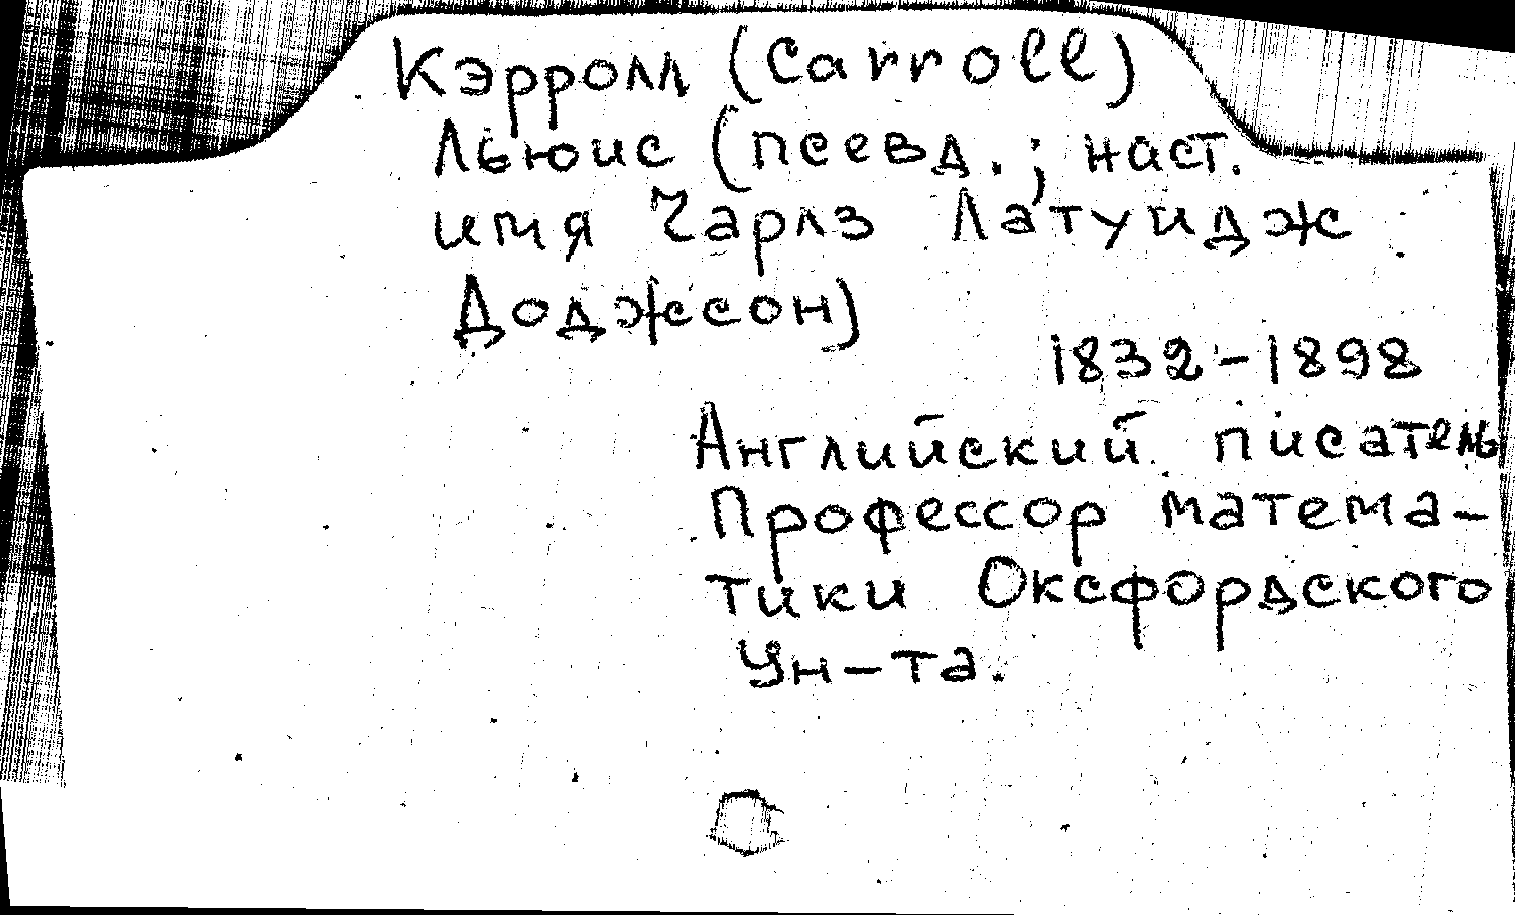 Кэрролл (Carroll)
Льюис (псевд.; наст.
имя Чарлз Латуидж
Доджсон)
1832-1898
Английский писатель
Профессор матема-
тики Оксфордского
Ун-та.